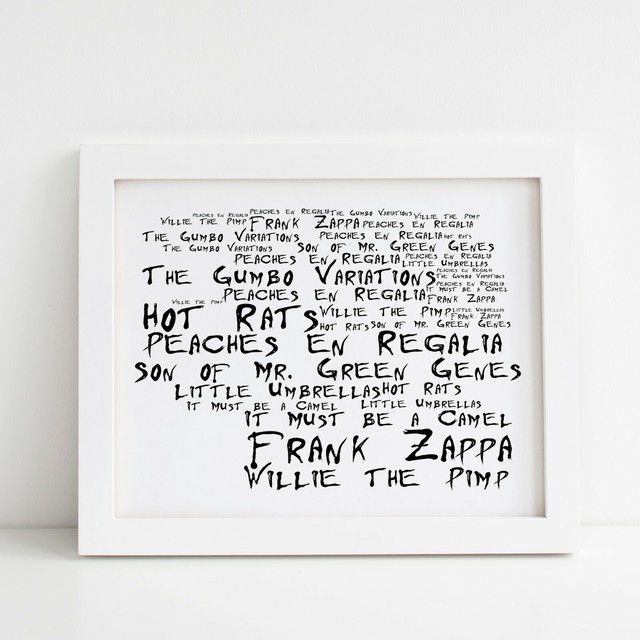 PEACHES EN REGALIA PEACHES EN REGALIA THE GUMBO VARIATIONS WILLIE THE PIMP
WILLIE THE PIMP FRANK ZAPPA PEACHES EN REGALIA
THE GUMBO VARIATIONS PEACHES EN REGALIA HOT RATS
THE GUMBO VARIATIONS SON OF MR. GREEN GENES
PEACHES EN REGALIA PEACHES EN REGALIA
LITTLE UMBRELLAS
PEACHES EN REGALIA
THE GUMBO VARIATIONS THE GUMBO VARIATIONS
PEACHES EN REGALIA
IT MUST BE A CAMEL
PEACHES EN REGALIA FRANK ZAPPA
WILLIE THE PIMP
HOT RATS WILLIE THE PIMP LITTLE UMBRELLAS
FRANK ZAPPA
HOT RATS SON OF MR. GREEN GENES
PEACHES EN REGALIA
SON OF MR. GREEN GENES
LITTLE UMBRELLAS HOT RATS
IT MUST BE A CAMEL LITTLE UMBRELLAS
IT MUST BE A CAMEL
FRANK ZAPPA
WILLIE THE PIMP